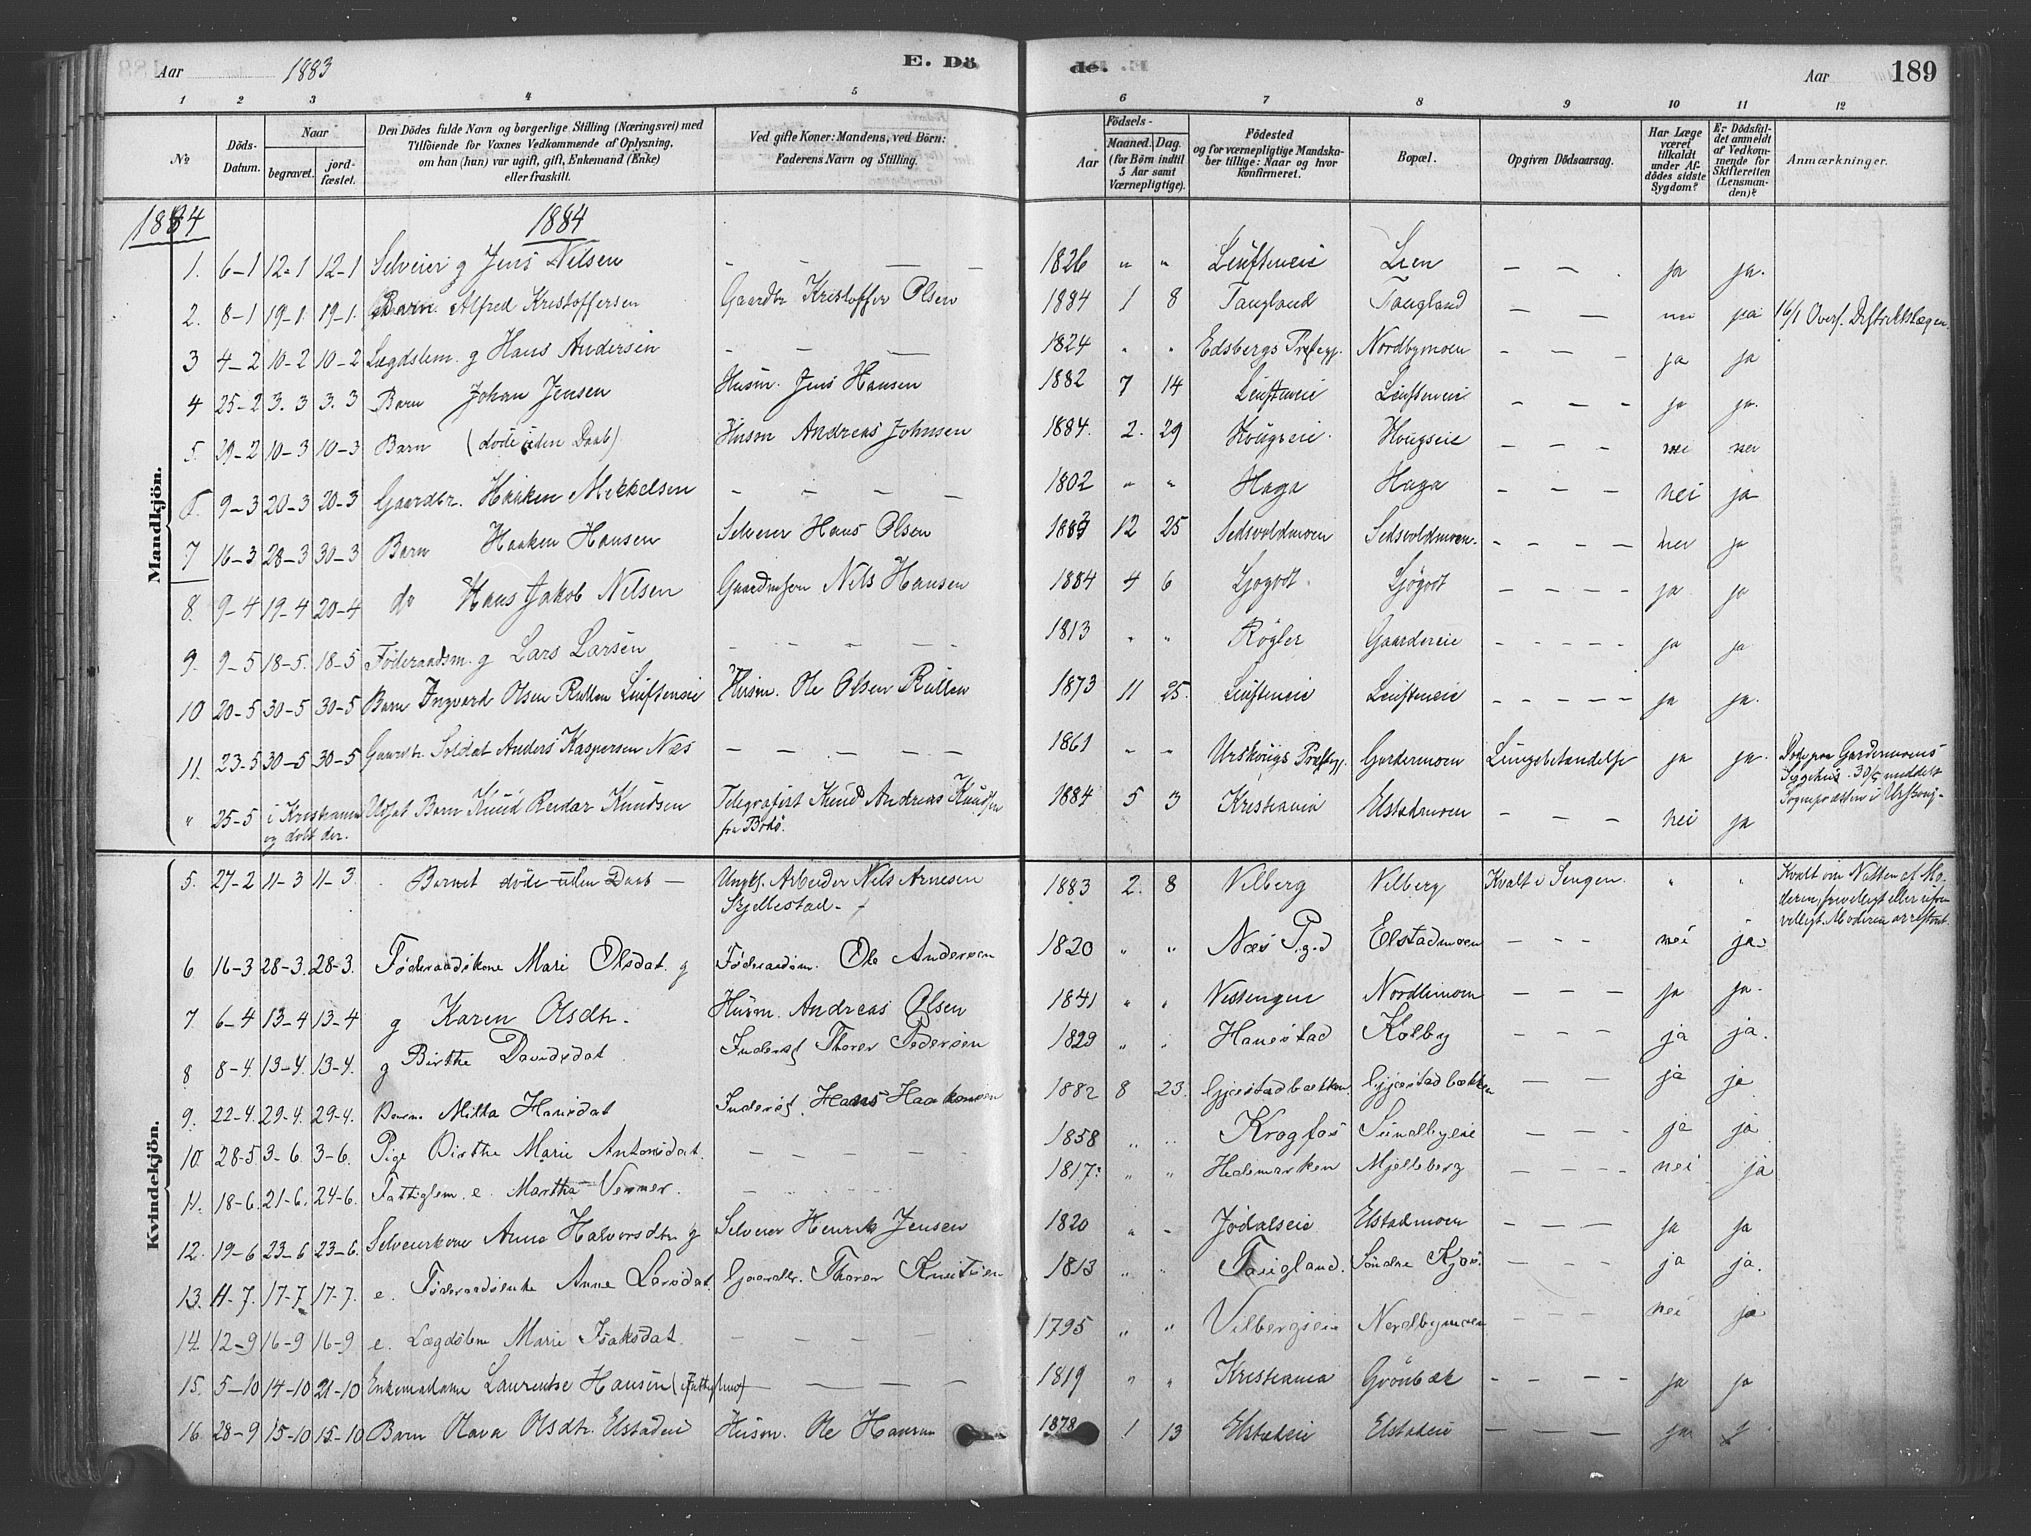 Aar 1883 E. Dö de. Aar 189
1 2 3 4 5 6 7 8 9 10 11 12
No. Döds-Datum. Naar begravet. jord-fæstet. Den Dödes fulde Navn og borgerlige Stilling (Næringsvei) med Tilföiende for Voxnes Vedkommende af Oplysning, om han (hun) var ugift, gift, Enkemand (Enke) eller fraskilt. Ved gifte Koner: Mandens, ved Börn: Faderens Navn og Stilling. Födsels- Aar Maaned. Dag. (for Börn indtil 5 Aar samt Værnepligtige). Födested og for værnepligtige Mandskaber tillige: Naar og hvor konfirmeret. Bopæl. Opgiven Dödsaarsag. Har Læge været tilkaldt under Afdödes sidste Sygdom? Er Dödsfaldet anmeldt af Vedkommende for Skifteretten (Lensmanden)? Anmærkninger.
1884 1884
Mandkjön.
1. 6-1 12-1 12-1 Selveier g Jens Nilsen — — — 1826 " " Linfteneie Lien — — ja ja.
2. 8-1 19-1. 19-1. Barn. Alfred Kristoffersen Gaardbr Kristoffer Olsen 1884 1 8 Taugland Taugland — — nei ja 16/1 Overf. Distriktslægen.
3 4-2 10-2 10-2 Lægdslem. g Hans Andersen — — — 1824 " " Edsbergs Præstegj. Nordbymoen — — — ja ja
4 25-2 3.3 3.3 Barn Johan Jensen Husm. Jens Hansen 1882 7 14 Linfteneie Linfteneie — — — ja ja.
5. 29-2 10-3 10-3 Barn (døde uden Daab) Husm Andreas Johnsen 1884. 2. 29 Hougseie. Hougseie — — — nei nei
6. 9-3 20-3 20-3 Gaardbr. Haaken Mikkelsen — — — — 1802 " " Haga Haga — — — nei ja
7 16-3 28-3 30-3 Barn Haaken Hansen Selveier Hans Olsen 1883 12 25 Sedsvoldmoen Sedsvoldmoen. — — — — nei ja
8. 9-4 19-4 20-4 do Hans Jakob Nilsen Gaardmsøn Nils Hansen 1884 4 6 Ljøgodt. Ljøgodt — — — — ja ja
9. 9-5 18-5. 18-5 Føderaadsm. g Lars Larsen — — — — — 1813 " " Røgler Gaardereie — — — — ja ja
10 20-5 30-5 30-5 Barn Ingvard Olsen Rullen Linfteneie Husm. Ole Olsen Rullen 1873 11 25. Linfteneie Linfteneie — — — — ja ja.
11. 23-5 30-5 30-5 Gaardbr. Soldat Anders Kaspersen Næs — — — — 1861 " " Urskougs Præstegj. Gardermoen Lungebetændelse ja ja. Døde paa Gardermoens
Sygehus. 30/5 meddelt
Sognepræsten i Urskoug.
" 25-5 i Kristiania Udsat Barn Knud Reidar Knudsen Telegrafist Knud Andreas Knudsen 1884 5 3 Kristiania Elstadmoen — — — nei ja
og døbt der. fra Bodø.
Kvindekjön.
5. 27-2 11-3 11-3. Barnet døde uden Daab — Ungk. Arbeider Nils Arnesen 1883 2. 8 Vilberg Vilberg Kvalt i Sengen. " " Kvalt om Natten af Mo-
Skjellestad — deren, frivilligt eller ufri-
villigt. Moderen arresteret.
6 16-3 28-3. 28-3. Føderaadskone Mari Olsdat. g Føderaadsm. Ole Andersen 1820 " " Næs Pgd Elstadmoen — — — nei ja
7 6-4 13-4 13-4 g Karen Olsdtr. Husm. Andreas Olsen 1841 " " Nestengen Nordlimoen — — — ja ja.
8 8-4. 13-4. 13-4. g Birthe Davidsdat. Inderst Thorer Pedersen 1829 " " Hanestad Kolby — — — ja ja.
9. 22-4. 29-4. 29-4. Barn Milla Hansdat Inderst. Hans Haakonsen 1882 8 23. Gjestadbækken Gjestadbækken — — — ja ja
10. 28-5 3-6. 3-6. Pige Birthe Marie Antonsdat. — — — — 1858 " " Krogfos Sundbyeie — — — ja ja
11. 18-6. 21-6. 24-6. Fattiglem. e. Martha Verner. — — — — 1817. " " Hedemarken Mjelleberg — — — nei ja
12. 19-6 23-6 23-6. Selveierkone Anne Halvorsdtr g Selveier Henrik Jensen 1820 " " Jødalseie Elstadmoen — — — ja ja
13. 11-7. 17-7 17-7. e. Føderaadsenke Anne Larsdat. Gaardbr. Thorer Knutsen 1813 " " Taugland. Søndre Kjos. — — — ja ja.
14. 12-9 16-9 16-9 e. Lægdslem Marie Isaksdat. — — — — 1795 " " Vilbergseie Nordbymoen — — — nei ja
15. 5-10 14-10 21-10 Enkemadame Laurentse Hansen (i Fattighus) — — — — 1819 " " Kristiania Grønbæk — — — — ja ja
16. 28-9 15-10 15-10 Barn Olava Olsdtr. Elstadeie Husm. Ole Hansen 1878 1 13 Elstadeie Elstadeie — — — — ja